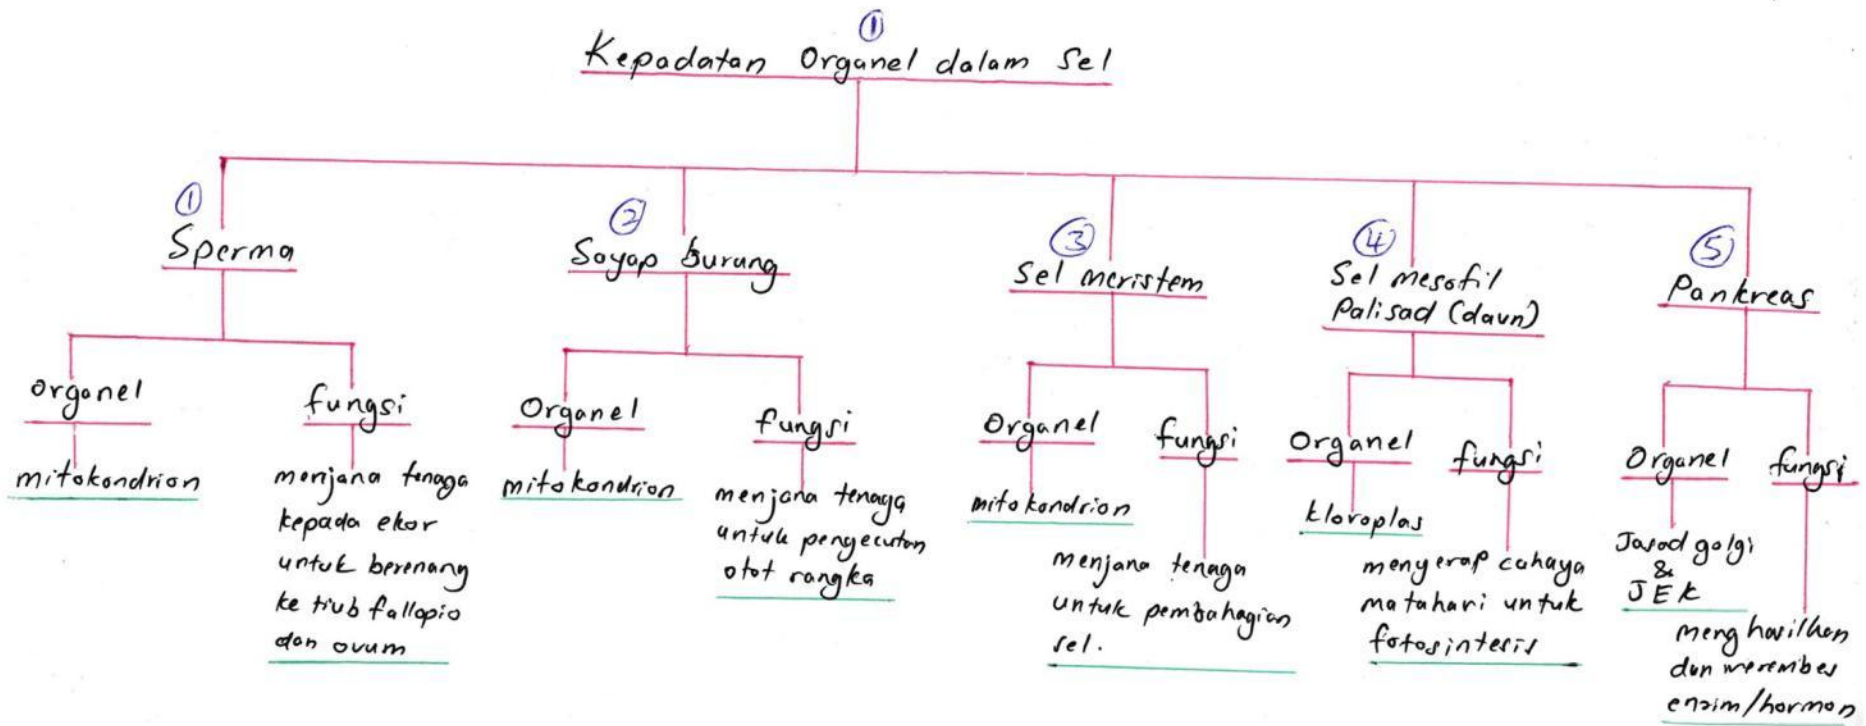 ①
Kepadatan Organel dalam Sel
①
Sperma
organel
mitokondrion
fungsi
menjana tenaga
kepada ekor
untuk berenang
ke tiub fallopio
dan ovum
②
Sayap burung
Organel
mitokondrion
fungsi
menjana tenaga
untuk pengecutan
otot rangka
③
Sel meristem
Organel
mitokondrion
fungsi
menjana tenaga
untuk pembahagian
sel.
④
Sel mesofil
Palisad (daun)
Organel
kloroplas
fungsi
menyerap cahaya
matahari untuk
fotosintesis
⑤
Pankreas
Organel
Jasad golgi
&
JEK
fungsi
menghasilkan
dan merembes
enzim/hormon